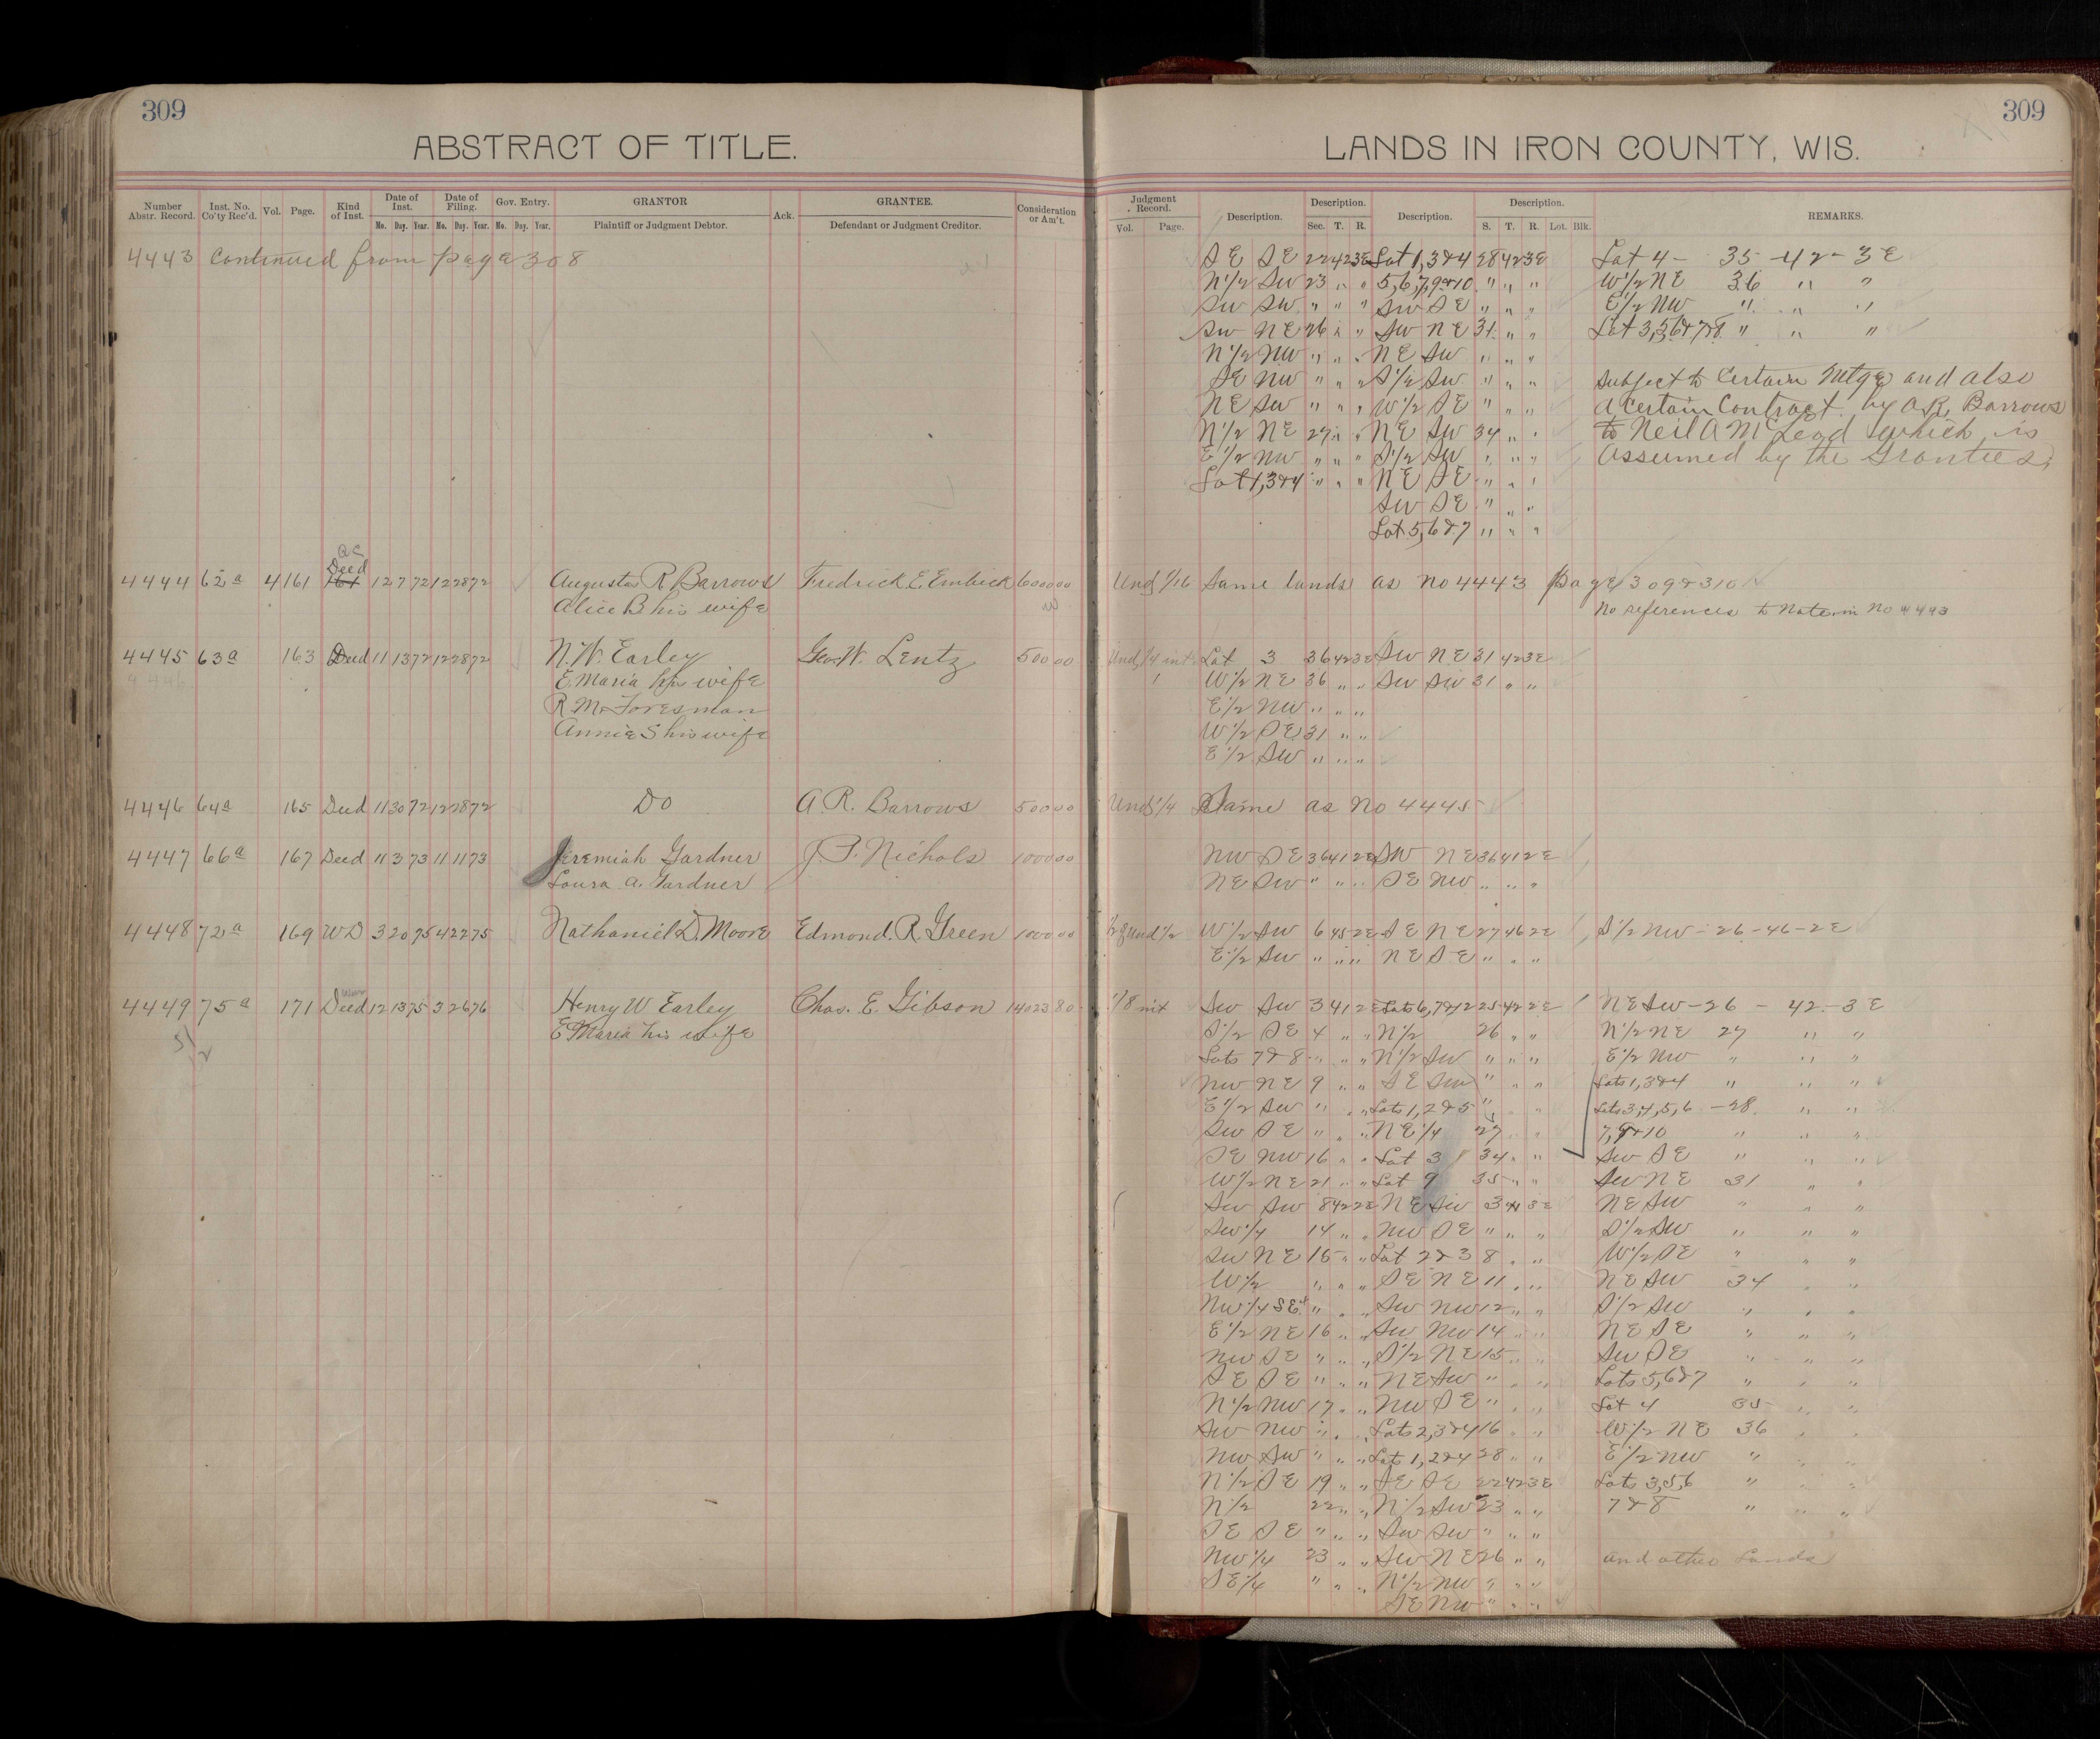 309
309
ABSTRACT OF TITLE.
LANDS IN IRON COUNTY, WIS.
Number Abstr. Record. Inst. No. Co'ty Rec'd. Vol. Page. Kind of Inst. Date of Inst. Mo. Day. Year. Date of Filing. Mo. Day. Year. Gov. Entry. Mo. Day. Year. GRANTOR Plaintiff or Judgment Debtor. Ack. GRANTEE. Defendant or Judgment Creditor. Consideration or Am't.
Judgment Record. Vol. Page. Description. Description. Sec. T. R. Description. Description. S. T. R. Lot. Blk. REMARKS.
4443 Continued from page 308
SE SE 22 42 3E Lot 1,3&4 28 42 3E Lat 4 - 35 - 42 - 3E
N1/2 SW 23 " " 5,6,7,9&10 " " " W1/2 NE 36 " "
SW SW " " " SW SE " " " E1/2 NW " " "
SW NE 26 " " SW NE 31 " " Lot 3,5,6&7&8 " " "
N1/2 NW " " " NE SW " " "
SE NW " " " S1/2 SW " " " Subject to Certain Mtge and also
NE SW " " " W1/2 SE " " " a Certain Contract by A.R. Barrows
N1/2 NE 27 " " NE SW 34 " " to Neil A McLeod which is
E1/2 NW " " " S1/2 SW " " " assumed by the Grantees.
Lot 1,3&4 " " " NE SE " " "
SW SE " " "
Lot 5,6&7 " " "
4444 62a 4 161 QC Deed 12 7 72 12 28 72 Augustus R. Barrows Fredrick E. Embick 6000 00 Und 1/16 Same lands as No 4443 page 309 & 310
Alice B his wife No references to Note in No 4443
4445 63a 163 Deed 11 13 72 12 28 72 N. W. Earley Geo W. Lentz 500 00 Und 1/4 int Lat 3 36 42 3E SW NE 31 42 3E
4446 E. Maria his wife W1/2 NE 36 " " SW SW 31 " "
R M Foresman E1/2 NW " " "
Annie S his wife W1/2 SE 31 " "
E1/2 SW " " "
4446 64a 165 Deed 11 30 72 12 28 72 Do A. R. Barrows 500 00 Und 1/4 Same as No 4445
4447 66a 167 Deed 11 3 73 11 11 73 Jeremiah Gardner J. P. Nichols 1000 00 NW SE 36 41 2E SW NE 36 41 2E
Loura A. Gardner NE SW " " " SE NW " " "
4448 72a 169 WD 3 20 75 4 22 75 Nathaniel D. Moore Edmond. R. Green 1000 00 1/2 of Und 1/2 W1/2 SW 6 45 2E SE NE 27 46 2E S1/2 NW - 26 - 46 - 2E
E1/2 SW " " " NE SE " " "
4449 75a 171 Warr Deed 12 13 75 3 26 76 Henry W Earley Chas. E. Gibson 14023 80 1/8 int SW SW 3 41 2E Lots 6,7&12 25 42 2E NE SW - 26 - 42 - 3E
E Maria his wife S1/2 SE 4 " " N1/2 26 " " N1/2 NE 27 " "
Lots 7&8 " " " N1/2 SW " " " E1/2 NW " " "
NW NE 9 " " SE SW " " " Lots 1,3&4 " " "
E1/2 SW " " " Lots 1,2&5 " " " Lots 3,4,5,6 - 28 " "
SW SE " " " NE1/4 27 " " 7,9&10 " " "
SE NW 16 " " Lot 3 34 " " SW SE " " "
W1/2 NE 21 " " Lot 9 35 " " SW NE 31 " "
SW SW 8 42 2E NE SW 3 41 3E NE SW " " "
SW1/4 14 " " NW SE " " " S1/2 SW " " "
SW NE 15 " " Lot 2&3 8 " " W1/2 SE " " "
W1/2 " " " SE NE 11 " " NE SW 34 " "
NW1/4 SE " " " SW NW 12 " " S1/2 SW " " "
E1/2 NE 16 " " SW NW 14 " " NE SE " " "
NW SE " " " S1/2 NE 15 " " SW SE " " "
SE SE " " " NE SW " " " Lots 5,6&7 " " "
N1/2 NW 17 " " NW SE " " " Lot 4 35 " "
SW NW " " " Lots 2,3&4 16 " " W1/2 NE 36 " "
NW SW " " " Lots 1,2&4 28 " " E1/2 NW " " "
N1/2 SE 19 " " SE SE 22 42 3E Lots 3,5,6 " " "
N1/2 22 " " N1/2 SW 23 " " 7&8 " " "
SE SE " " " SW SW " " "
NW1/4 23 " " SW NE 26 " " and other Lands
SE1/4 " " " N1/2 NW " " "
SE NW " " "